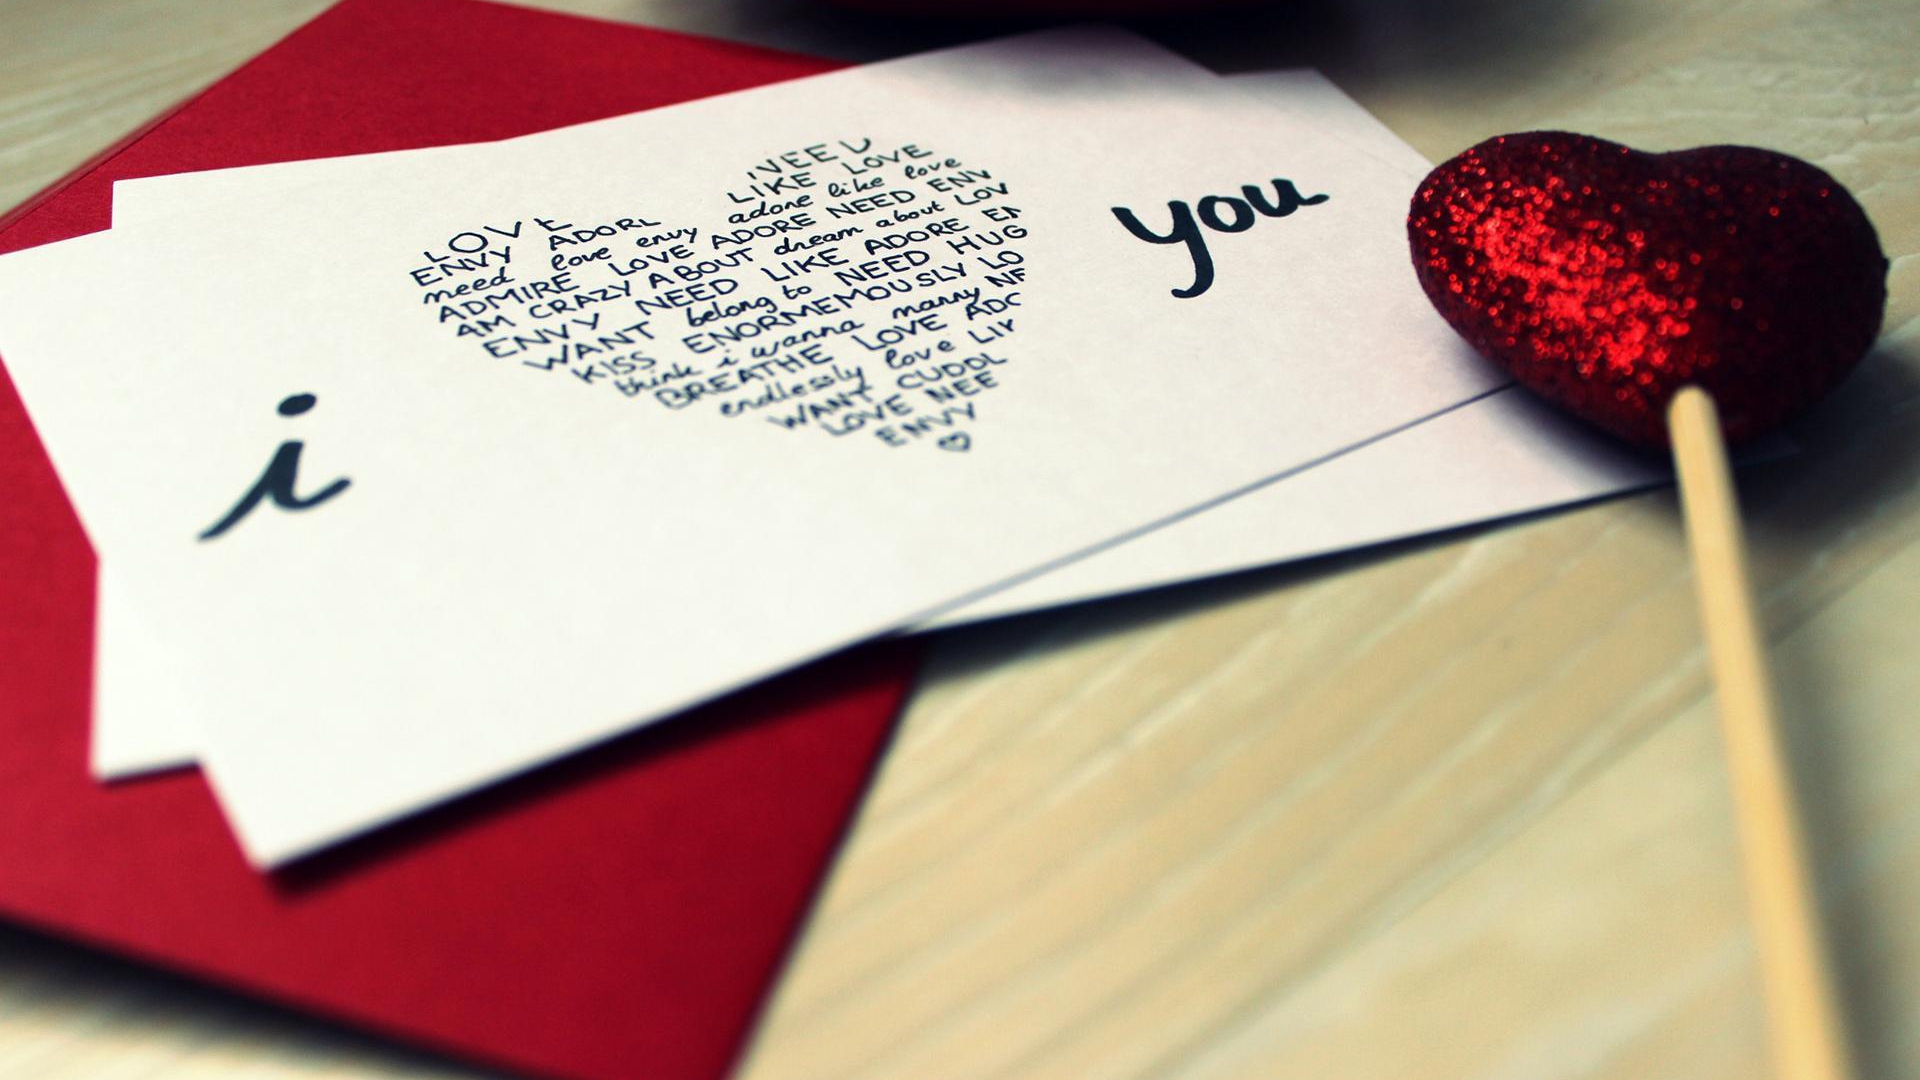 i
LOVE
ENVY ADORL
need love envy
ADMIRE LOVE ADORE NEED ENV
AM CRAZY ABOUT dream about LOV
ENVY NEED LIKE ADORE
WANT belong to NEED HUG
KISS ENORMEMOUSLY LO
think i wanna marry
BREATHE LOVE ADC
endlessly love
WANT CUDDL
LOVE NEE
ENVY
LIKE LOVE
adore like love
you